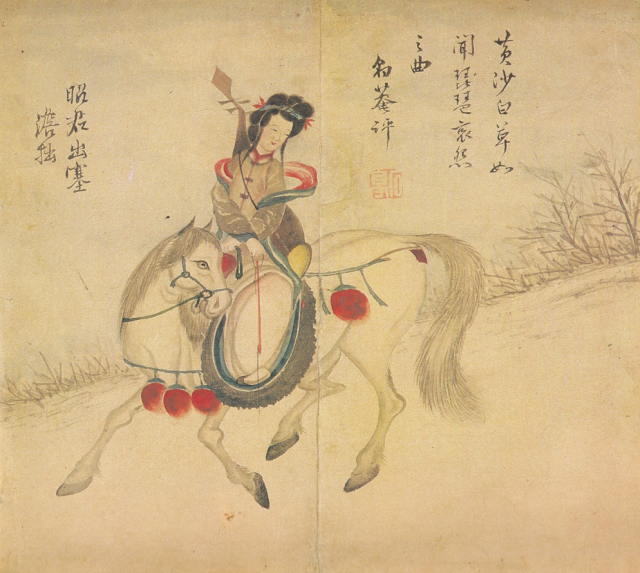 黃沙白草如
聞琵琶哀怨
之曲
豹菴評
昭君出塞
澹拙